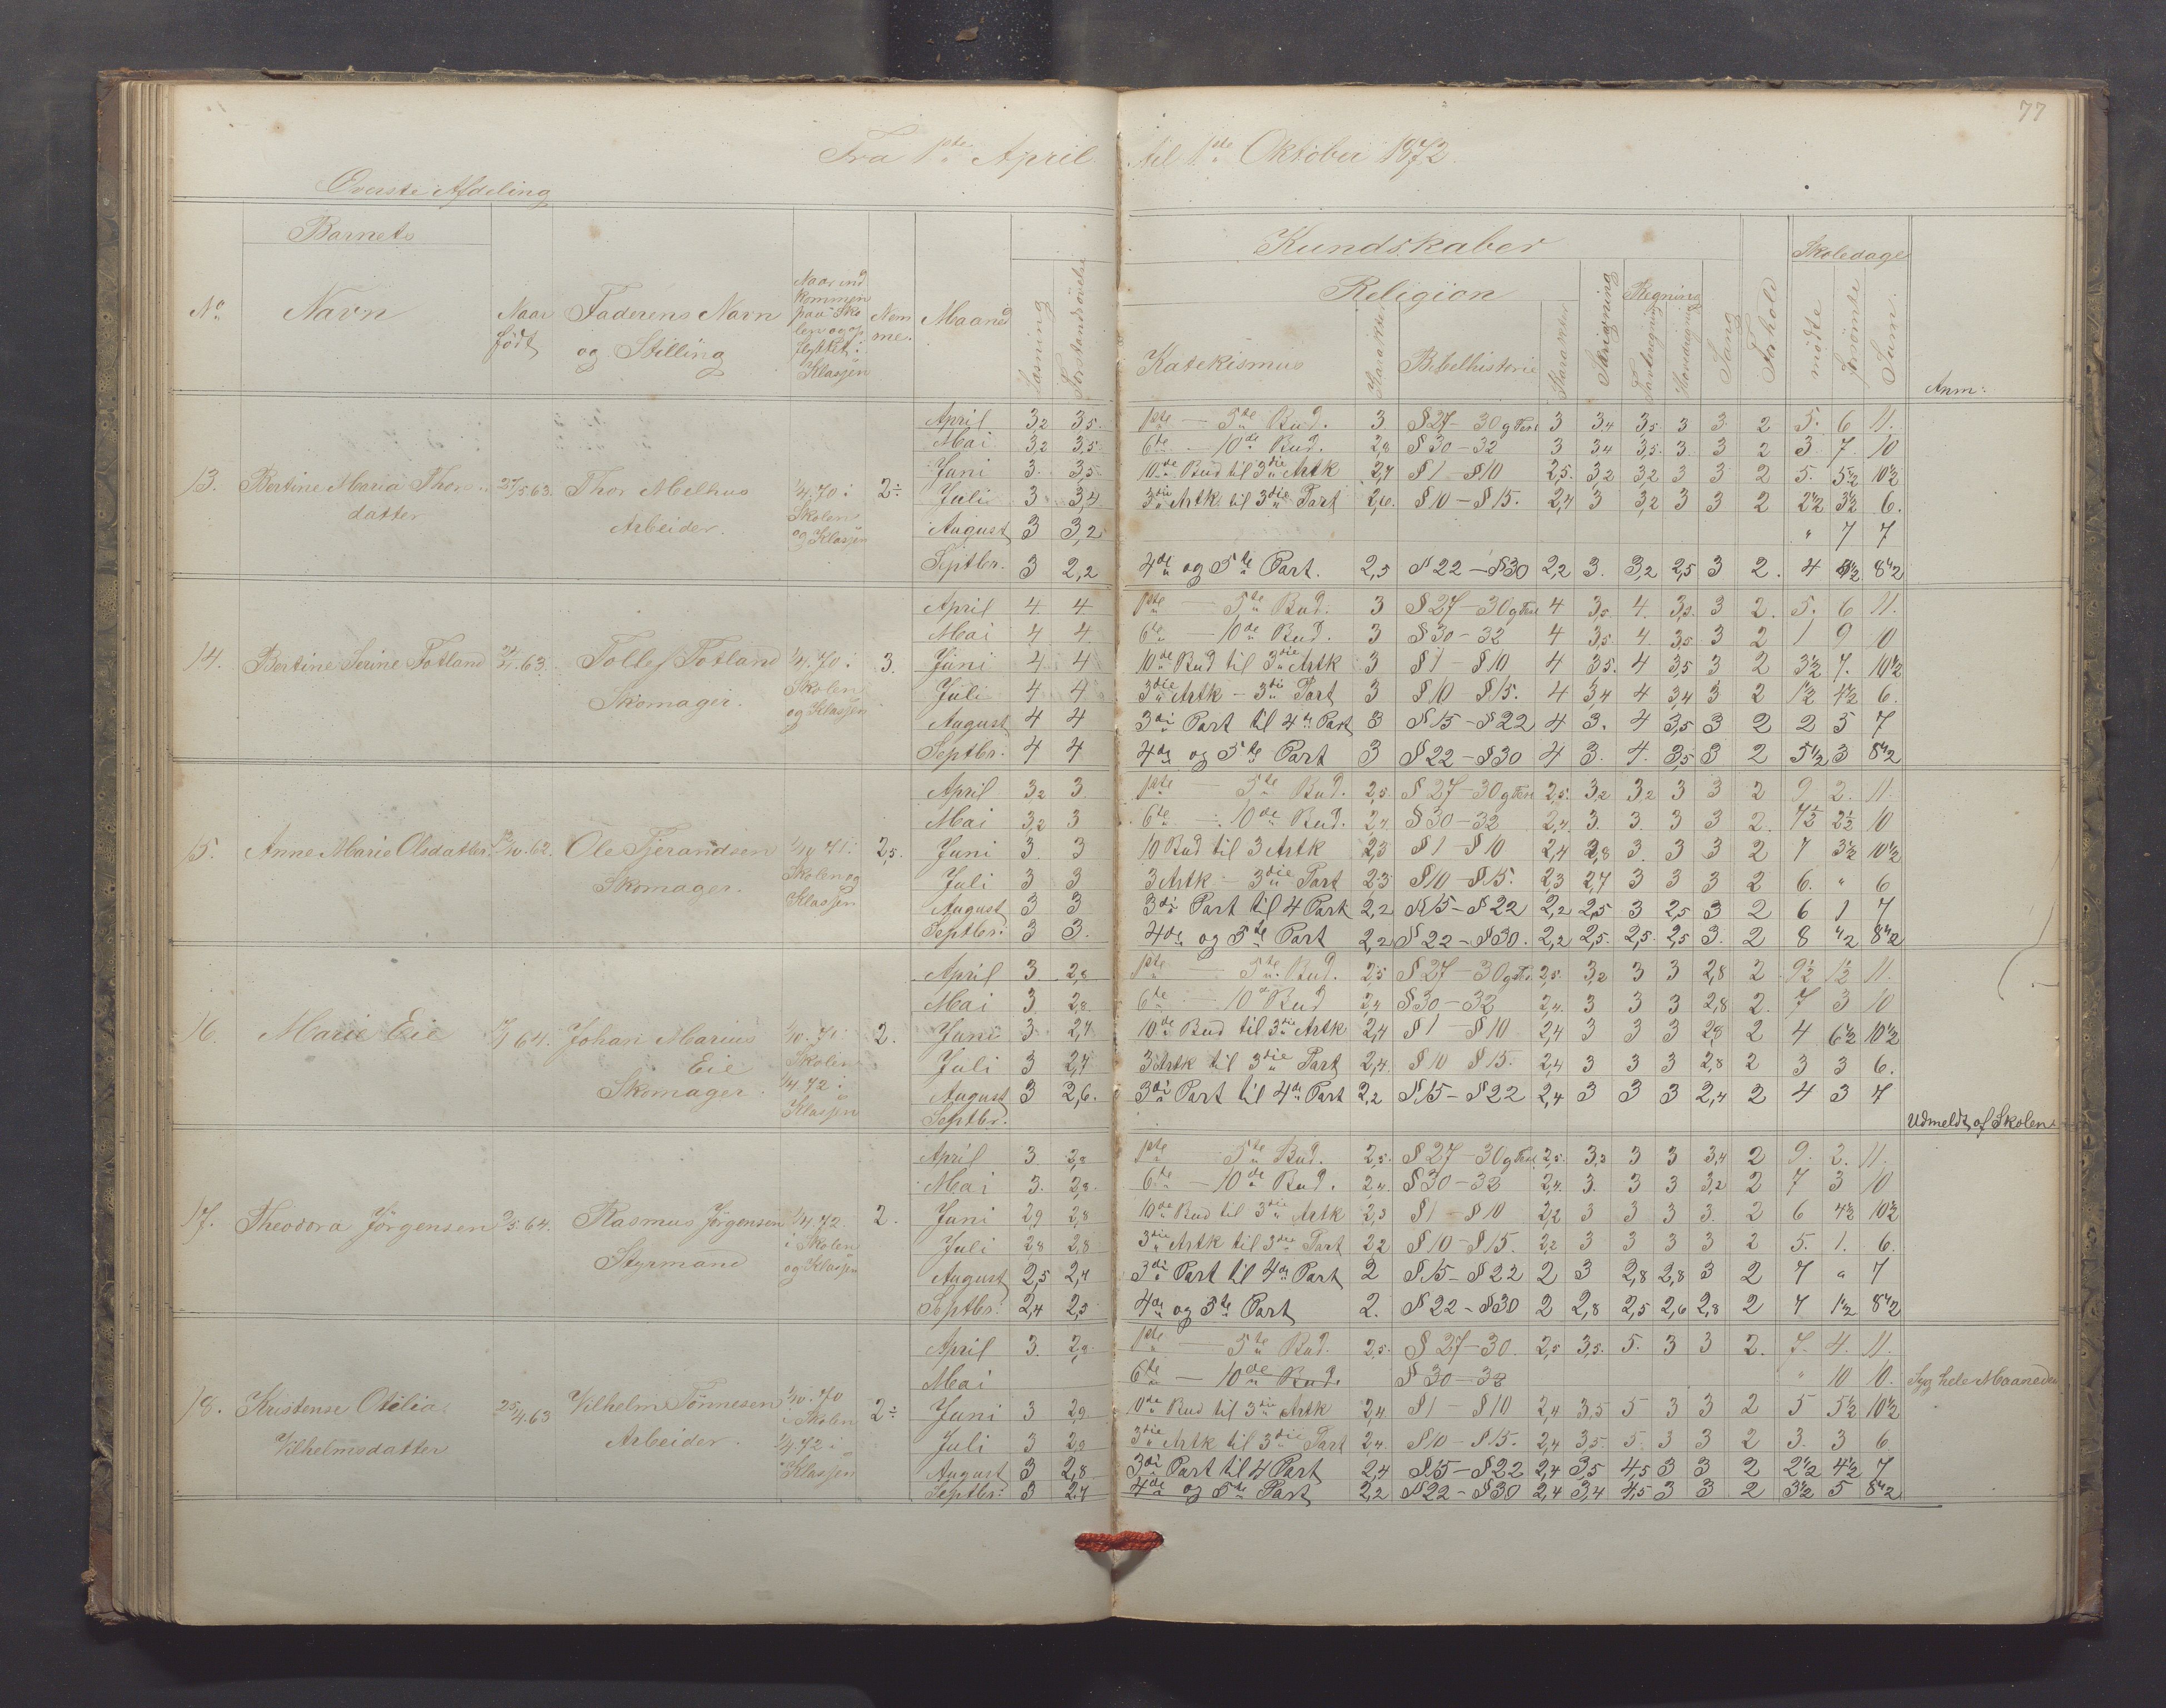 77
Fra 1ste April til 1ste Oktober 1872
Överste Afdeling
Barnets
Kundskaber
Skoledage
Religion
Regning
No Navn Naar födt Faderens Navn og Stilling Naar ind kommen paa Sko len og op flyttet i Klassen Nem me. Maaned Læsning Forstandsøvelse Katekismus Karakter Bibelhistorie Karakter Skrivning Tavleregning Hovedregning Sang Forhold mødte forsømte Sum. Anm:
April 3,2 3,5. 1ste — 5te Bud. 3 § 27 - 30 g Test 3 3,4 3,5 3 3 2 5. 6 11.
Mai 3,2 3,5 6te — 10de Bud. 2,8 § 30 - 32 3 3,4 3,5. 3 3 2 3 7. 10
Juni 3. 3,5 10de Bud til 3die Artk 2,7 § 1 - § 10 2,5. 3,2 3,2 3 3 2 5. 5½ 10½
13. Bertine Maria Thors- datter 27/5.63. Thor Melhus Arbeider. ¼.70 i Skolen og Klassen 2÷
Juli 3 3,4 3die Artk. til 3die Part 2,6. § 10 - § 15. 2,4 3 3,2 3 3 2 2½ 3½ 6.
August 3 3,2 " 7 7
Septbr. 3 2,2 4de og 5te Part. 2,5 § 22 - § 30 2,2 3. 3,2 2,5 3 2. 4 4½ 8½
April 4. 4 1ste — 5te Bud. 3 § 27 - 30 g Test 4 3,5. 4. 3,5. 3 2. 5. 6 11.
Mai 4 4. 6te — 10de Bud. 3 § 30 - 32 4 3,5. 4. 3,5 3 2 1 9 10
14. Bertine Serine Totland .63. Tollef Totland Skomager. ¼.70 i Skolen og Klassen 3.
Juni 4 4 10de Bud til 3die Artk 3 § 1 - § 10 4 3,5. 4 3,5 3 2 3½ 7. 10½
Juli 4 4 3die Artk - 3die Part 3 § 10 - § 15. 4 3,4 4 3,4 3 2 1½ 4½ 6.
August 4 4 3di Part til 4de Part 3 § 15 - § 22 4 3. 4 3,5 3 2 2 5 7
Septbr. 4 4 4de og 5te Part 3 § 22 - § 30 4 3. 4. 3,5 3 2 5½ 3 8½
April 3,2 3. 1ste — 5te Bud. 2,5. § 27 - 30 g Test 2,5. 3,2 3,2 3 3 2 9 2. 11.
Mai 3,2 3 6te — 10de Bud. 2,4 § 30 - 32 2,4. 3. 3. 3 3 2. 7½ 2½ 10
15. Anne Marie Olsdatter .62. Ole Tjerandsen Skomager. 1/10 71. i Skolen og Klassen 2,5.
Juni 3. 3 10 Bud til 3 Artk 2,3 § 1 - § 10 2,4 2,8 3. 3 3 2 7 3½ 10½
Juli 3 3 3 Artk - 3die Part 2,3 § 10 - § 15. 2,3 2,7 3 3 3 2 6. " 6
August 3 3 3di Part til 4 Part 2,2 § 15 - § 22 2,2 2,5 3 2,5 3 2 6 1 7
Septbr. 3 3. 4de og 5te Part 2,2 § 22 - § 30. 2,2 2,5. 2,5. 2,5 3. 2 8 ½ 8½
April 3 2,8 1ste — 5te Bud. 2,5 § 27 - 30 g Te. 2,5. 3,2 3 3 2,8 2 9½ 1½ 11.
Mai 3. 2,8. 6te — 10de Bud 2,4 § 30 - 32 2,4. 3 3 3 2,8 2. 7 3 10
16. Marie Eie 64. Johan Marius Eie Skomager. 1/10. 71 i Skolen ¼ 72 i Klassen 2.
Juni 3 2,7 10de Bud til 3die Artk 2,4 § 1 - § 10 2,4 3 3 3 2,8 2 4 6½ 10½
Juli 3 2,7 3 Artk til 3die Part 2,4. § 10 § 15. 2,4 3 3 3 2,8 2 3 3 6.
August 3 2,6. 3di Part til 4de Part 2,2 § 15 - § 22 2,4 3 3 3 2,4 2 4 3 7
Septbr. Udmeldt af Skolen.
April 3 2,8 1ste — 5te Bud. 2,5. § 27 - 30 g Test 2,5. 3,2 3 3 3,4 2 9. 2. 11.
Mai 3. 2,8. 6te — 10de Bud. 2,4. § 30 - 32 2,4. 3. 3 3 3,2 2 7 3 10
17. Theodora Jörgensen 5.64. Rasmus Jörgensen Styrmand ¼.72. i Skolen og Klassen 2.
Juni 2,9 2,8 10de Bud til 3die Artk 2,3 § 1 - § 10 2,2 3 3 3 3. 2 6 4½ 10½
Juli 2,8 2,8 3die Artk til 3die Part 2,2 § 10 - § 15. 2,2 3 3 3 3 2 5. 1. 6.
August 2,5 2,4 3di Part til 4de Part 2 § 15 - § 22 2 3 2,8 2,8 3 2 7 " 7
Septbr. 2,4 2,3 4de og 5te Part 2. § 22 - § 30 2 2,8 2,5 2,6 2,8 2 7 1½ 8½
April 3. 2,9. 1ste — 5te Bud. 2,5. § 27 - 30. 2,5 3,5. 5. 3 3 2. 7. 4. 11.
Mai 6te — 10de Bud. § 30 - 32 " 10 10. Syg hele Maaneden
18. Kristense Otilia Vilhelmsdatter 25/4.63 Vilhelm Tönnesen Arbeider. 1/10.70 i Skolen ¼.72 i Klassen 2÷
Juni 3 2,9 10de Bud til 3die Artk 2,4. § 1 - § 10 2,4 3,5 5 3 3 2 5 5½ 10½
Juli 3 2,9 3die Artk til 3die Part 2,4. § 10 - § 15. 2,4 3,5. 5. 3 3 2 3. 3 6
August 3 2,8. 3di Part til 4 Part 2,4 § 15 - § 22 2,4 3,5 4,5 3 3 2 2½ 4½ 7
Septbr. 3 2,7 4de og 5te Part 2,2 § 22 - § 30 2,4 3,4 4,5 3 3 2 3½ 5 8½